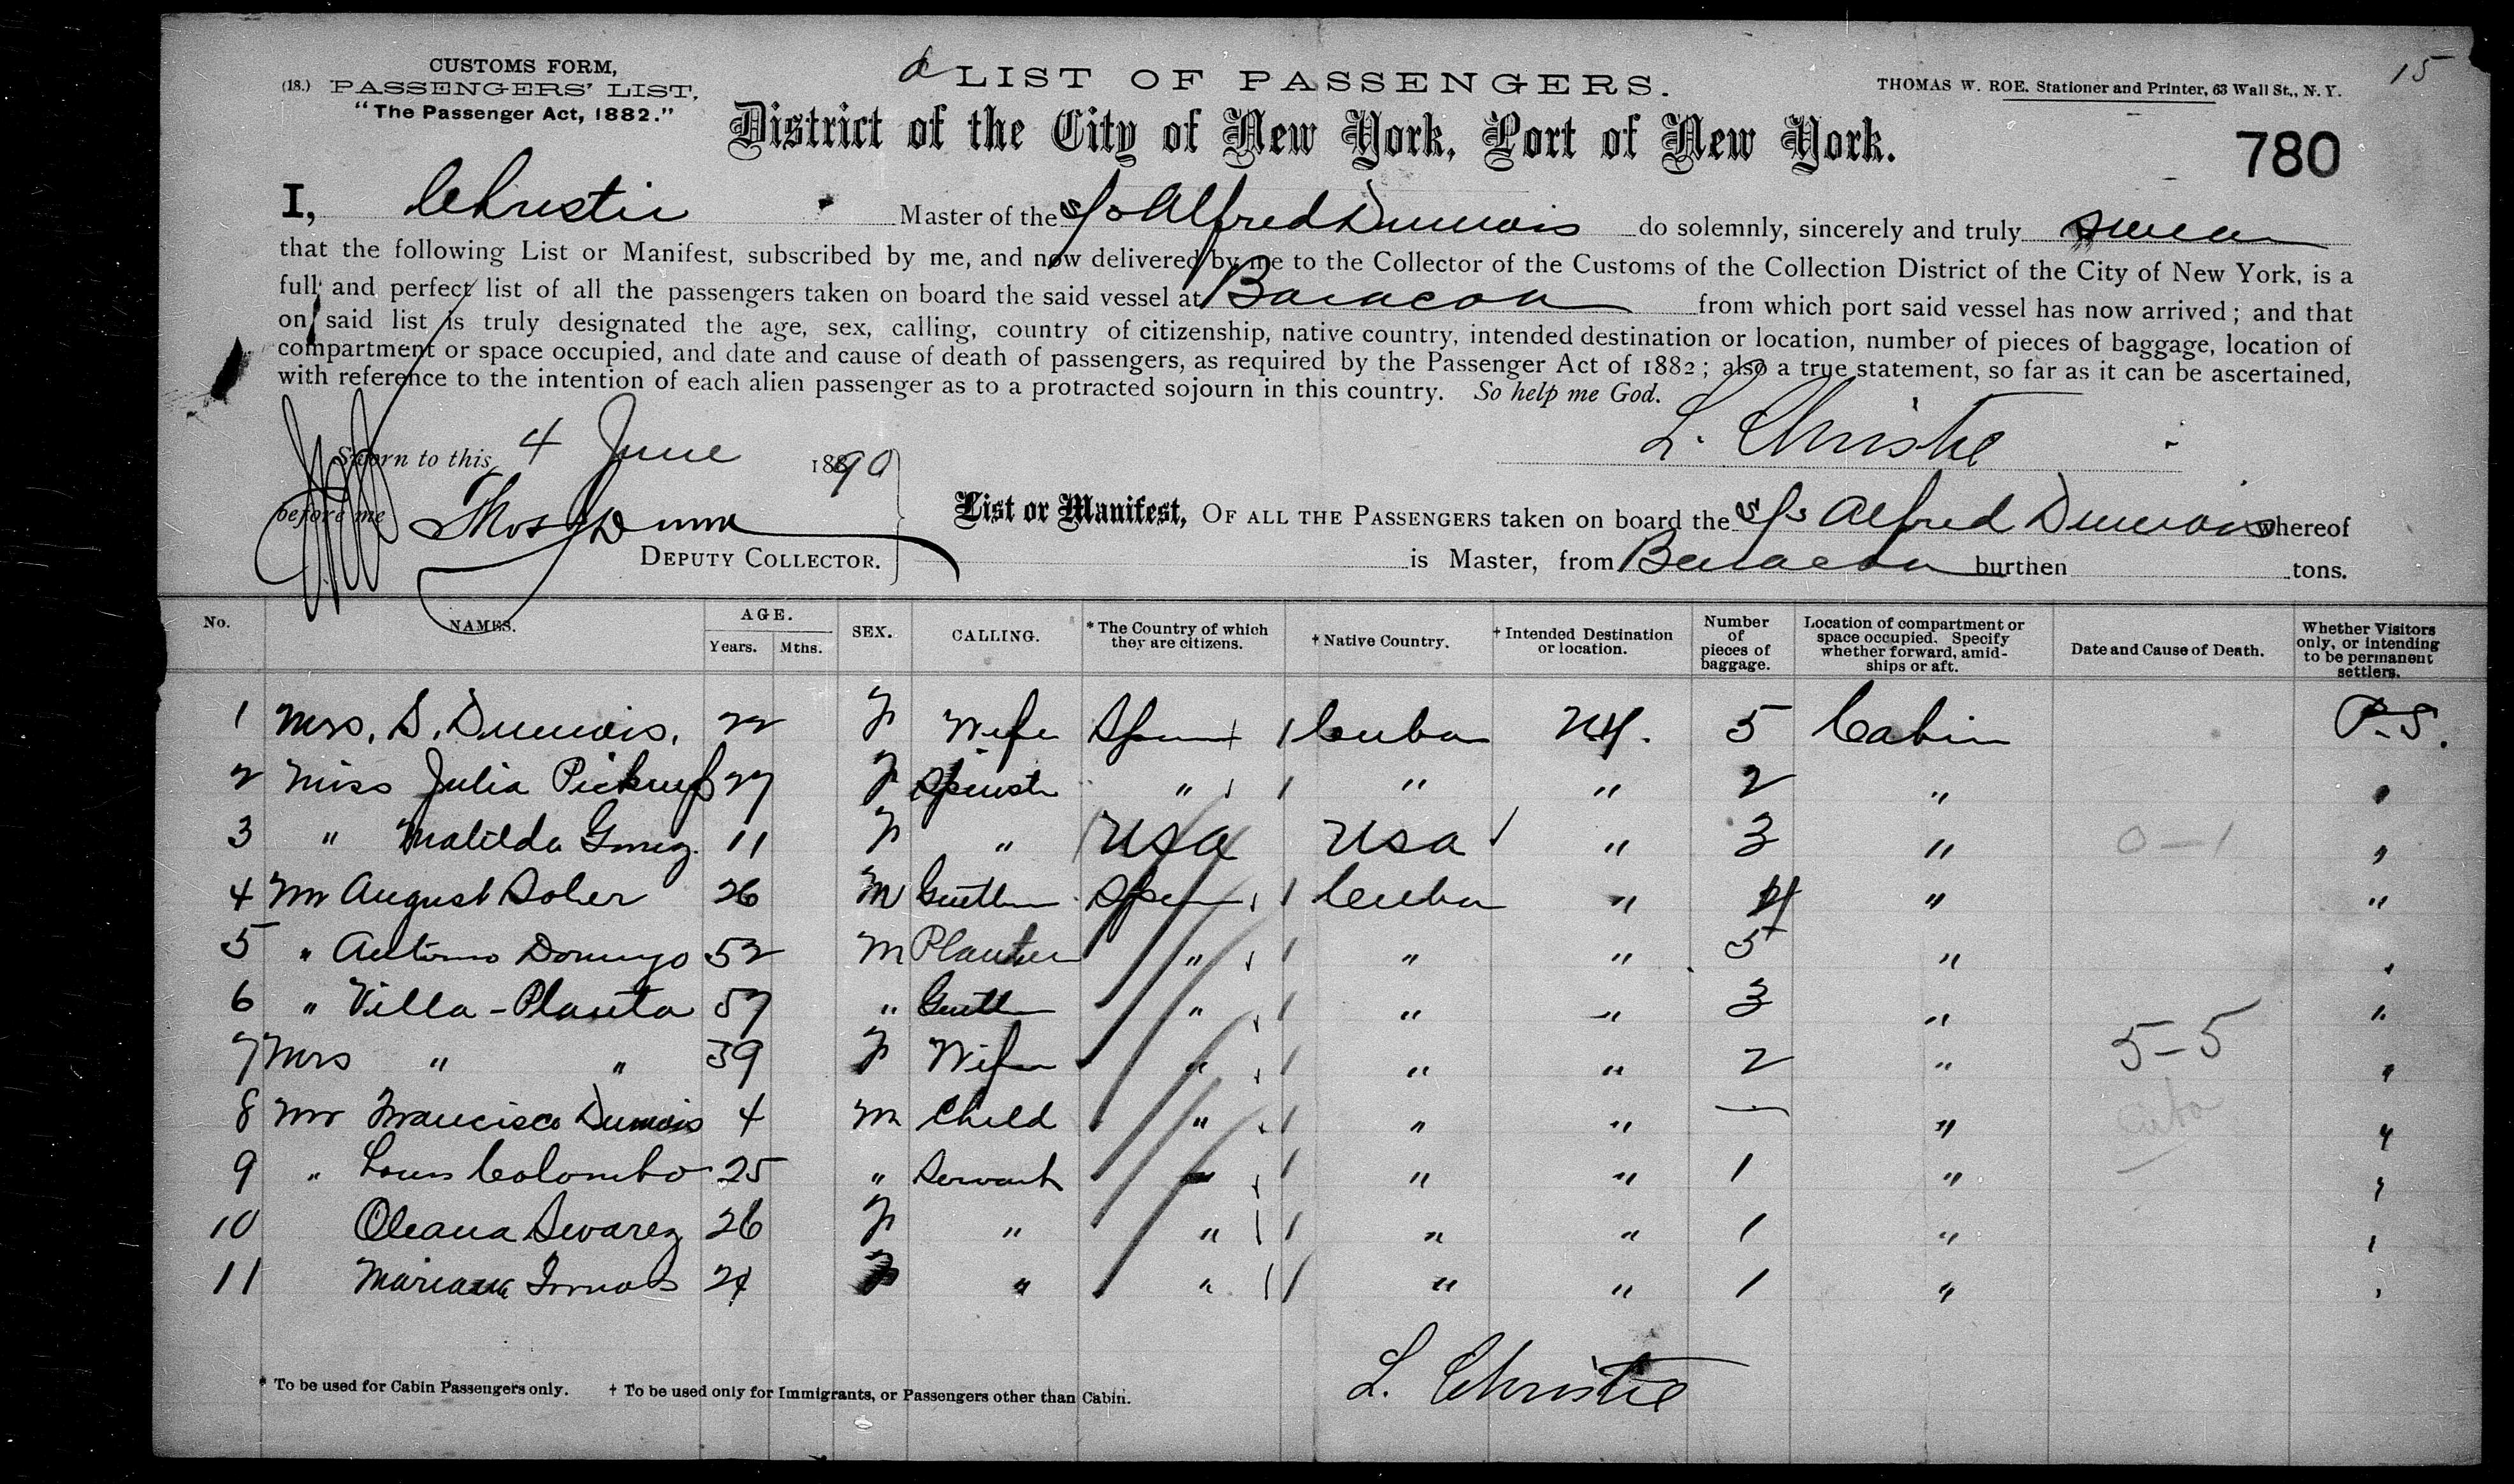 15
CUSTOMS FORM,
(18.) PASSENGERS' LIST,
"The Passenger Act, 1882."
LIST OF PASSENGERS.
THOMAS W. ROE. Stationer and Printer, 63 Wall St., N.Y.
District of the City of New York, Port of New York.
780
I, Christie Master of the S/s Alfred Dumois do solemnly, sincerely and truly swear
that the following List or Manifest, subscribed by me, and now delivered by me to the Collector of the Customs of the Collection District of the City of New York, is a
full and perfect list of all the passengers taken on board the said vessel at Baracoa from which port said vessel has now arrived; and that
on said list is truly designated the age, sex, calling, country of citizenship, native country, intended destination or location, number of pieces of baggage, location of
compartment or space occupied, and date and cause of death of passengers, as required by the Passenger Act of 1882; also a true statement, so far as it can be ascertained,
with reference to the intention of each alien passenger as to a protracted sojourn in this country. So help me God.
L. Christie
Sworn to this 4 June 1890
before me Thos Dunn
DEPUTY COLLECTOR.
List or Manifest, OF ALL THE PASSENGERS taken on board the S/s Alfred Dumois whereof
is Master, from Baracoa burthen tons.
No. NAMES. AGE. Years. Mths. SEX. CALLING. * The Country of which they are citizens. † Native Country. † Intended Destination or location. Number of pieces of baggage. Location of compartment or space occupied. Specify whether forward, amidships or aft. Date and Cause of Death. Whether Visitors only, or intending to be permanent settlers.
1 Mrs. S. Dumois. 22 F Wife Spain Cuba NY. 5 Cabin P.S.
2 Miss Julia 27 F Spinst " " " 2 " "
3 " Matilda Gomez. 11 F " USA USA " 3 " 0-1 "
4 Mr August Soler 26 M Gentlm Spain Cuba " 4 " "
5 " Antonio Domingo 52 M Planter " " " 5 " "
6 " Villa-Planta 57 " Gentlm " " " 3 " "
7 Mrs " " 39 F Wife " " " 2 " 5-5 "
8 Mr Francisco Dumois 4 M Child " " " — " Cuba "
9 " Louis Colombo 25 " Servant " " " 1 " "
10 Oleana Suarez 26 F " " " " 1 " "
11 Mariana 24 F " " " " 1 " "
L. Christie
* To be used for Cabin Passengers only. † To be used only for Immigrants, or Passengers other than Cabin.